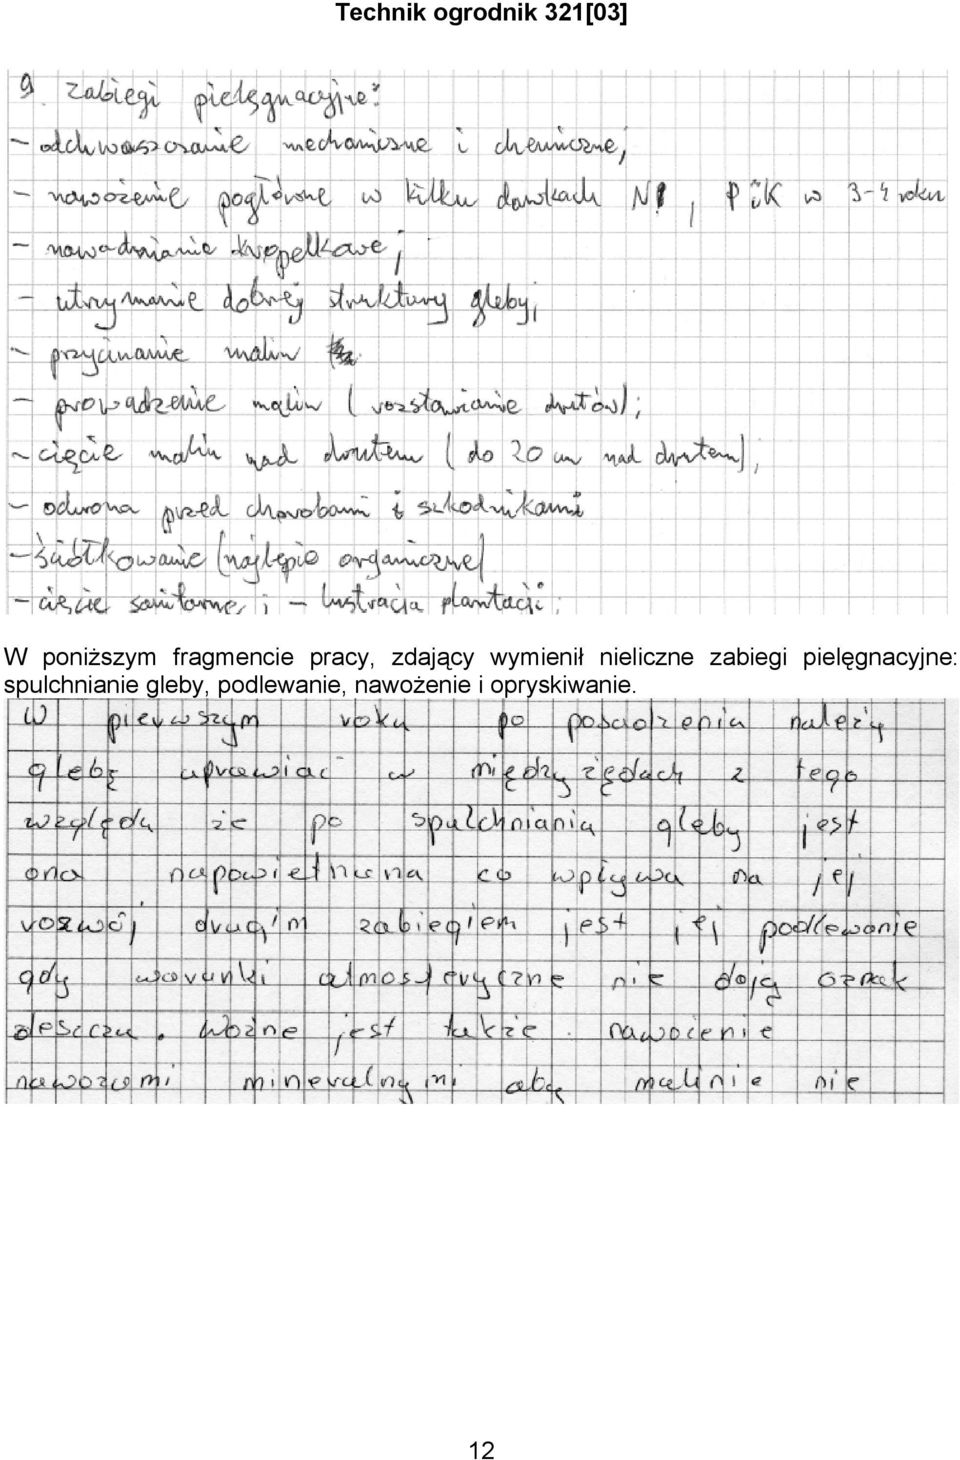 Technik ogrodnik 321[03]
9. Zabiegi pielęgnacyjne:
- odchwaszczanie mechaniczne i chemiczne,
- nawożenie pogłówne w kilku dawkach N, P i K w 3-4 roku
- nawadnianie kropelkowe;
- utrzymanie dobrej struktury gleby,
- przycinanie malin
- prowadzenie malin (rozstawianie drutów);
- cięcie malin nad drutem (do 20 cm nad drutem),
- ochrona przed chorobami i szkodnikami
- ściółkowanie (najlepio organiczne)
- cięcie sanitarne, ; - lustracja plantacji;
W poniższym fragmencie pracy, zdający wymienił nieliczne zabiegi pielęgnacyjne:
spulchnianie gleby, podlewanie, nawożenie i opryskiwanie.
W pierwszym roku po posadzeniu należy
glebę uprawiać w międzyrzędach z tego
względu że po spulchnianiu gleby jest
ona napowietrzona co wpływa na jej
rozwój drugim zabiegiem jest jej podlewanie
gdy warunki atmosferyczne nie dają oznak
deszczu. Ważne jest także nawożenie
nawozami mineralnymi aby malinie nie
12